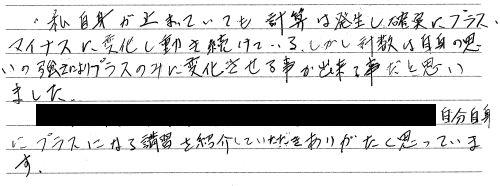 ・私自身が止まっていても計算は発生し確実にプラス、
マイナスに変化し動き続けている。しかし利数は自身の思
いの強さによりプラスのみに変化させる事が出来る事だと思い
ました。
自分自身
にプラスになる講習を紹介していただきありがたく思っていま
す。